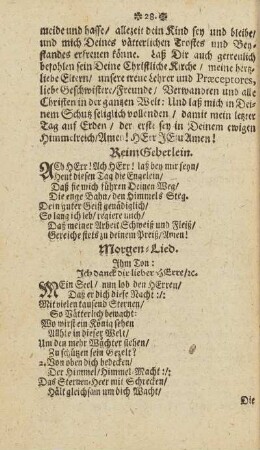 * 28. *
meide und hasse/ allezeit dein Kind sey und bleibe/
und mich Deines vätterlichen Trostes und Bey-
standes erfreuen könne. Laß Dir auch getreulich
befohlen sein Deine Christliche Kirche/ meine hertz-
liebe Eltern/ unsere treue Lehrer und Præceptores,
liebe Geschwister/ Freunde/ Verwandten und alle
Christen in der gantzen Welt: Und laß mich in Dei-
nem Schutz seliglich vollenden/ damit mein letzter
Tag auf Erden/ der erste sey in Deinem ewigen
Himmelreich/ Amen! HErr JEsu Amen!
Reim Gebetlein.
ACh HErr! Ach HErr! laß bey mir seyn/
Heut diesen Tag die Engelein/
Daß sie mich führen Deinen Weg/
Die enge Bahn/ den Himmels Steg.
Dein guter Geist genädiglich/
So lang ich leb/ regiere mich/
Daß meiner Arbeit Schweiß und Fleiß/
Gereiche stets zu deinem Preiß/ Amen!
Morgen-Lied.
Jhm Ton:
Jch danck dir lieber HErre/ ꝛc.
MEin Seel/ nun lob den HErren/
Daß er dich diese Nacht :/:
Mit vielen tausend Sternen/
So Vätterlich bewacht:
Wo wirst ein König sehen
Allhie in dieser Welt/
Um den mehr Wächter stehen/
Zu schützen sein Gezelt?
2. Von oben dich bedecken/
Der Himmel/ Himmel-Macht :/:
Das Sternen-Heer mit Schrecken/
Hält gleichsam um dich Wacht/
Die